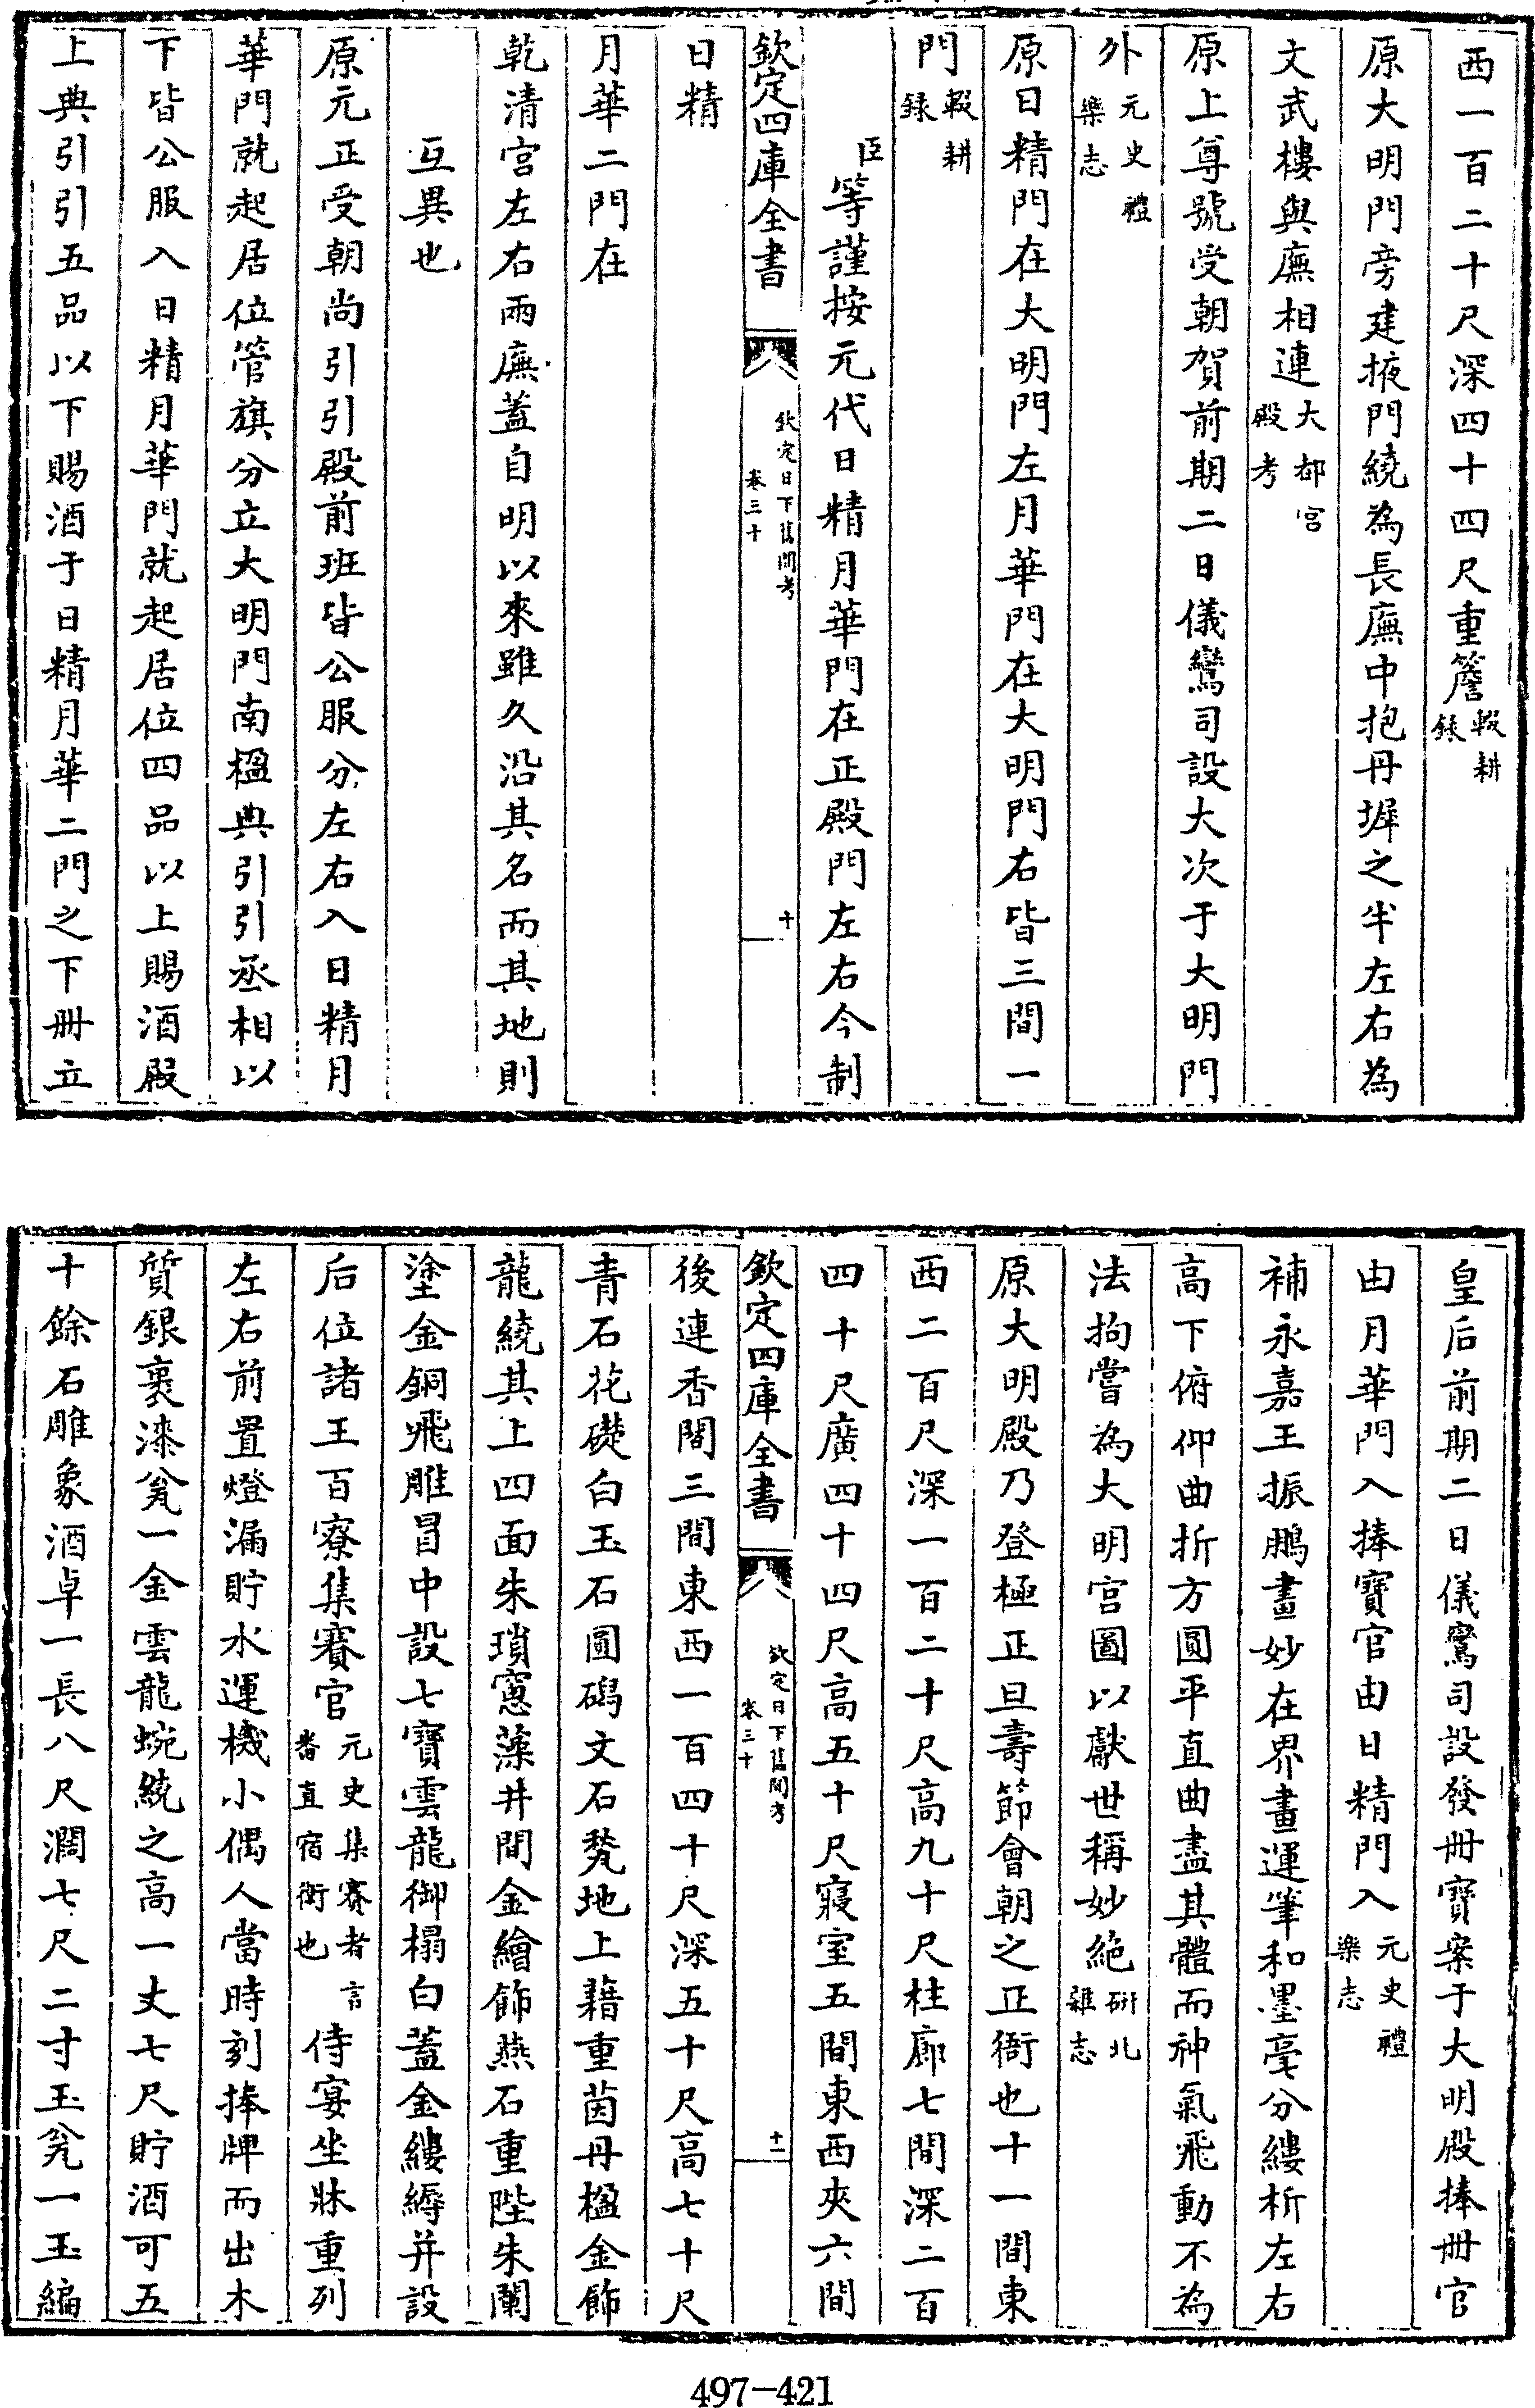 西一百二十尺深四十四尺重簷輟耕錄
原大明門旁建掖門繞為長廡中抱丹墀之半左右為
文武樓與廡相連大都宮殿考
原上尊號受朝賀前期二日儀鸞司設大次于大明門
外元史禮樂志
原日精門在大明門左月華門在大明門右皆三間一
門輟耕錄
臣等謹按元代日精月華門在正殿門左右今制
欽定四庫全書 欽定日下舊聞考 卷三十 十
日精
月華二門在
乾清宮左右兩廡蓋自明以來雖久沿其名而其地則
互異也
原元正受朝尚引引殿前班皆公服分左右入日精月
華門就起居位管旗分立大明門南楹典引引丞相以
下皆公服入日精月華門就起居位四品以上賜酒殿
上典引引五品以下賜酒于日精月華二門之下冊立
皇后前期二日儀鸞司設發冊寶案于大明殿捧冊官
由月華門入捧寶官由日精門入元史禮樂志
補永嘉王振鵬畫妙在界畫運筆和墨毫分縷析左右
高下俯仰曲折方圓平直曲盡其體而神氣飛動不為
法拘嘗為大明宮圖以獻世稱妙絕研北雜志
原大明殿乃登極正旦壽節會朝之正衙也十一間東
西二百尺深一百二十尺高九十尺柱廊七間深二百
四十尺廣四十四尺高五十尺寢室五間東西夾六間
欽定四庫全書 欽定日下舊聞考 卷三十 十一
後連香閣三間東西一百四十尺深五十尺高七十尺
青石花礎白玉石圓碣文石甃地上藉重茵丹楹金飾
龍繞其上四面朱瑣窻藻井間金繪飾燕石重陛朱闌
塗金銅飛雕冒中設七寶雲龍御榻白蓋金縷縟并設
后位諸王百寮集賽官元史集賽者言番直宿衛也侍宴坐牀重列
左右前置燈漏貯水運機小偶人當時刻捧牌而出木
質銀裹漆瓮一金雲龍蜿繞之高一丈七尺貯酒可五
十餘石雕象酒卓一長八尺濶七尺二寸玉瓮一玉編
497-421